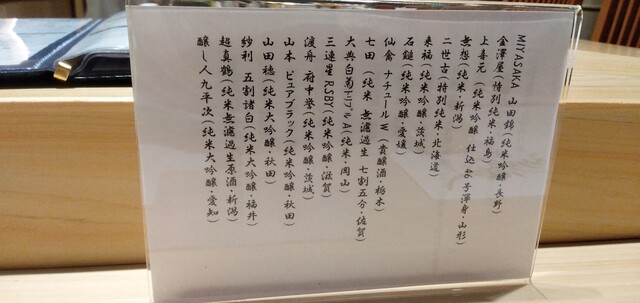 MIYASAKA 山田錦(純米吟醸・長野)
金澤屋(特別純米・福島)
上喜元(純米吟醸 仕込45号渾身・山形)
無想(純米・新潟)
二世古(特別純米・北海道)
来福(純米吟醸・茨城)
石鎚(純米吟醸・愛媛)
仙禽 ナチュールW(貴醸酒・栃木)
七田(純米 無濾過生 七割五分・佐賀)
大典白菊トリプルA(純米・岡山)
三連星RUBY(純米吟醸・滋賀)
渡舟 府中誉(純米吟醸・茨城)
山本 ピュアブラック(純米吟醸・秋田)
山田穂(純米大吟醸・秋田)
紗利 五割諸白(純米大吟醸・福井)
超真鶴(純米無濾過生原酒・新潟)
醸し人九平次(純米大吟醸・愛知)